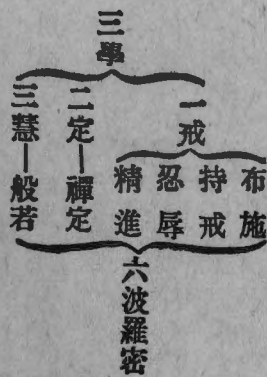 三學
一戒
布施
持戒
忍辱
精進
二定—禪定
三慧—般若
六波羅密